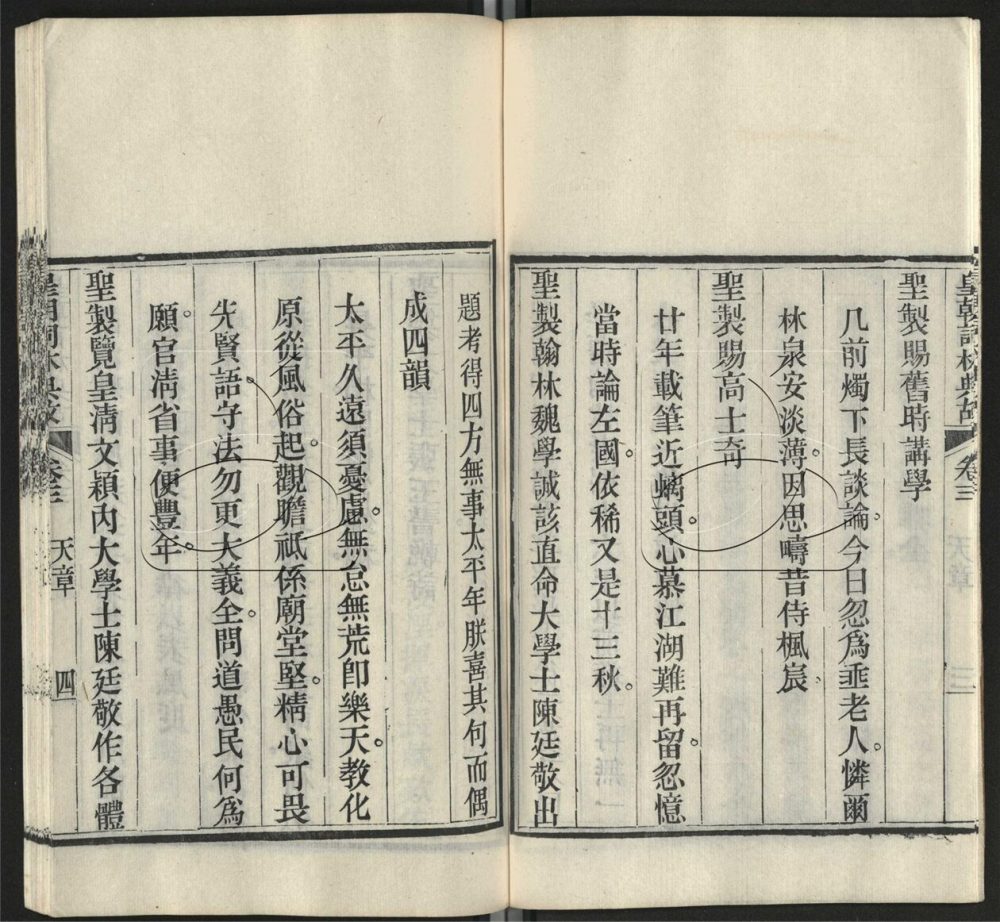 皇朝詞林典故 卷三 天章 三
聖製賜舊時講學
几前燭下長談論。今日忽爲垂老人。憐爾
林泉安淡薄。因思疇昔侍楓宸。
聖製賜高士奇
廿年載筆近螭頭。心慕江湖難再留。忽憶
當時論左國。依稀又是十三秋。
聖製翰林魏學誠該直命大學士陳廷敬出
題考得四方無事太平年朕喜其句而偶
成四韻
太平久遠須憂慮。無怠無荒卽樂天。教化
原從風俗起。觀瞻祗係廟堂堅。精心可畏
先賢語。守法勿更大義全。問道愚民何爲
願。官淸省事便豐年。
聖製覽皇淸文穎內大學士陳廷敬作各體
皇朝詞林典故 卷三 天章 四